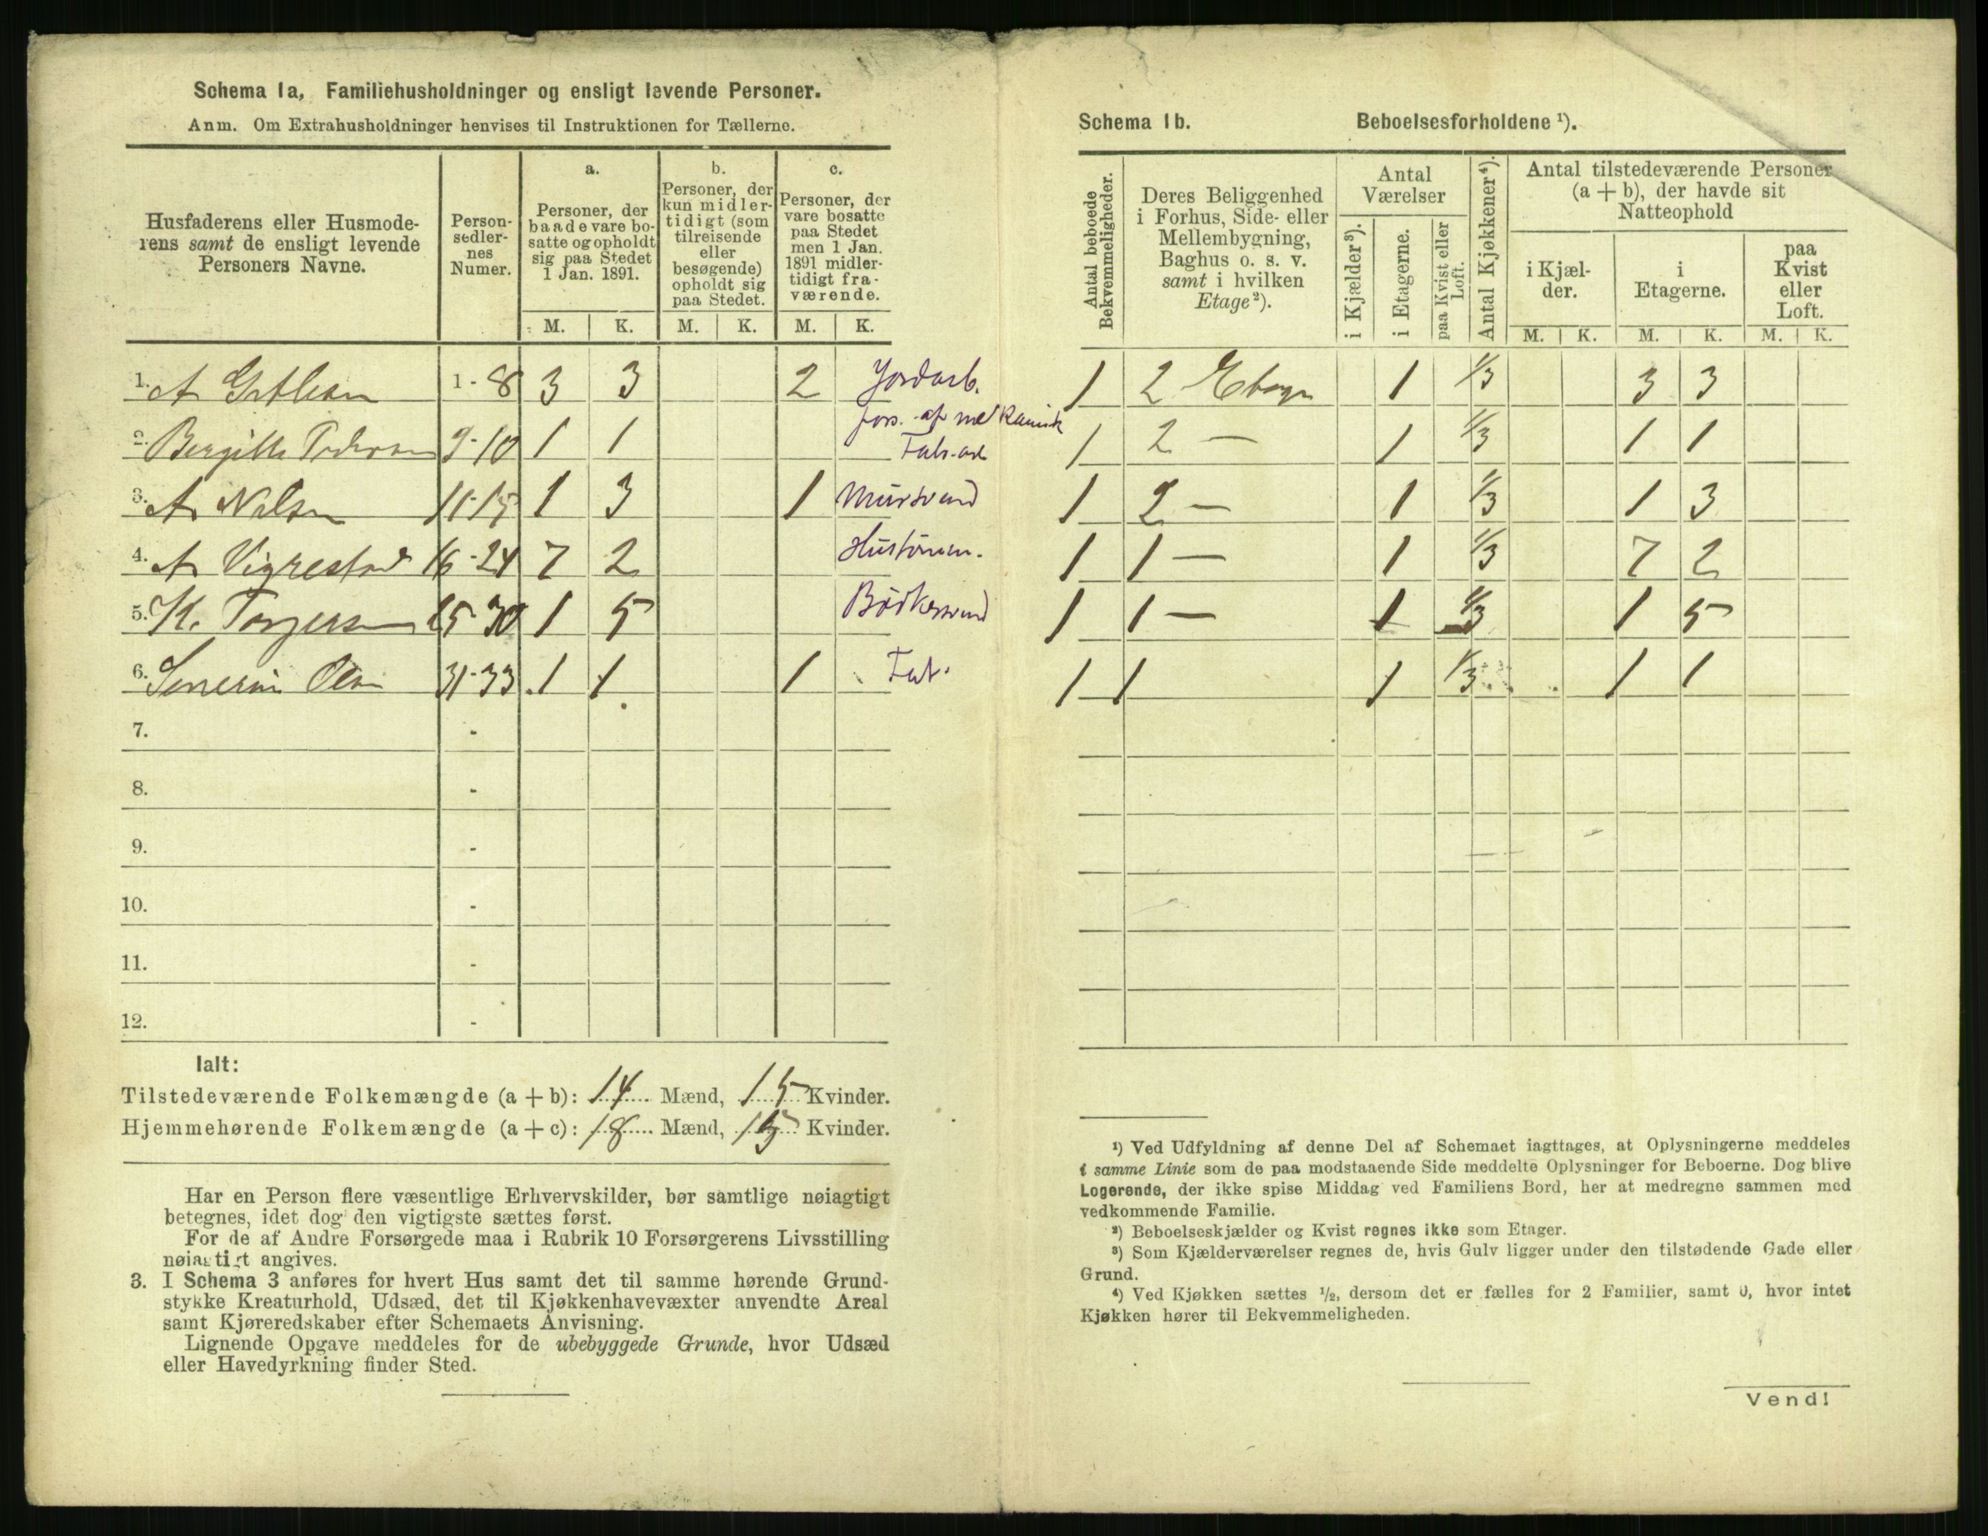 Schema 1a, Familiehusholdninger og ensligt levende Personer.
Anm. Om Extrahusholdninger henvises til Instruktionen for Tællerne.
Husfaderens eller Husmoderens samt de ensligt levende Personers Navne.
Personsedlernes Numer.
a.
Personer, der baade vare bosatte og opholdt sig paa Stedet 1 Jan. 1891.
b.
Personer, der kun midlertidigt (som tilreisende eller besøgende) opholdt sig paa Stedet.
c.
Personer, der vare bosatte paa Stedet men 1 Jan. 1891 midlertidigt fraværende.
M. K. M. K. M. K.
1. A 1 - 8 3 3 2 Jordarb.
2. Bergitte 9-10 1 1 fors. af mekanisk
Fabr.arb
3. A Nilsen 11-15 1 3 1 Mursvend
4. A Vigrestad 16-24 7 2 Hustømm.
5. K. Torgersen 25-30 1 5 Bødkersvend
6. Severin Olsen 31-33 1 1 1 Fab.
7. -
8. -
9. -
10. -
11. -
12. -
Ialt:
Tilstedeværende Folkemængde (a + b): 14 Mænd, 15 Kvinder.
Hjemmehørende Folkemængde (a + c): 18 Mænd, 15 Kvinder.
Har en Person flere væsentlige Erhvervskilder, bør samtlige nøiagtigt
betegnes, idet dog den vigtigste sættes først.
For de af Andre Forsørgede maa i Rubrik 10 Forsørgerens Livsstilling
nøiagtigt angives.
3. I Schema 3 anføres for hvert Hus samt det til samme hørende Grund-
stykke Kreaturhold, Udsæd, det til Kjøkkenhavevæxter anvendte Areal
samt Kjøreredskaber efter Schemaets Anvisning.
Lignende Opgave meddeles for de ubebyggede Grunde, hvor Udsæd
eller Havedyrkning finder Sted.
Schema 1b. Beboelsesforholdene ¹).
Antal beboede Bekvemmeligheder.
Deres Beliggenhed i Forhus, Side- eller Mellembygning, Baghus o. s. v. samt i hvilken Etage²).
Antal Værelser
i Kjælder³).
i Etagerne.
paa Kvist eller Loft.
Antal Kjøkkener⁴).
Antal tilstedeværende Personer (a + b), der havde sit Natteophold
i Kjælder.
i Etagerne.
paa Kvist eller Loft.
M. K. M. K. M. K.
1 2 Etage 1 1/3 3 3
1 2 — 1 1/3 1 1
1 2 — 1 1/3 1 3
1 1 — 1 1/3 7 2
1 1 — 1 1/3 1 5
1 1 1 1/3 1 1
¹) Ved Udfyldning af denne Del af Schemaet iagttages, at Oplysningerne meddeles
i samme Linie som de paa modstaaende Side meddelte Oplysninger for Beboerne. Dog blive
Logerende, der ikke spise Middag ved Familiens Bord, her at medregne sammen med
vedkommende Familie.
²) Beboelseskjælder og Kvist regnes ikke som Etager.
³) Som Kjælderværelser regnes de, hvis Gulv ligger under den tilstødende Gade eller
Grund.
⁴) Ved Kjøkken sættes ½, dersom det er fælles for 2 Familier, samt 0, hvor intet
Kjøkken hører til Bekvemmeligheden.
Vend!